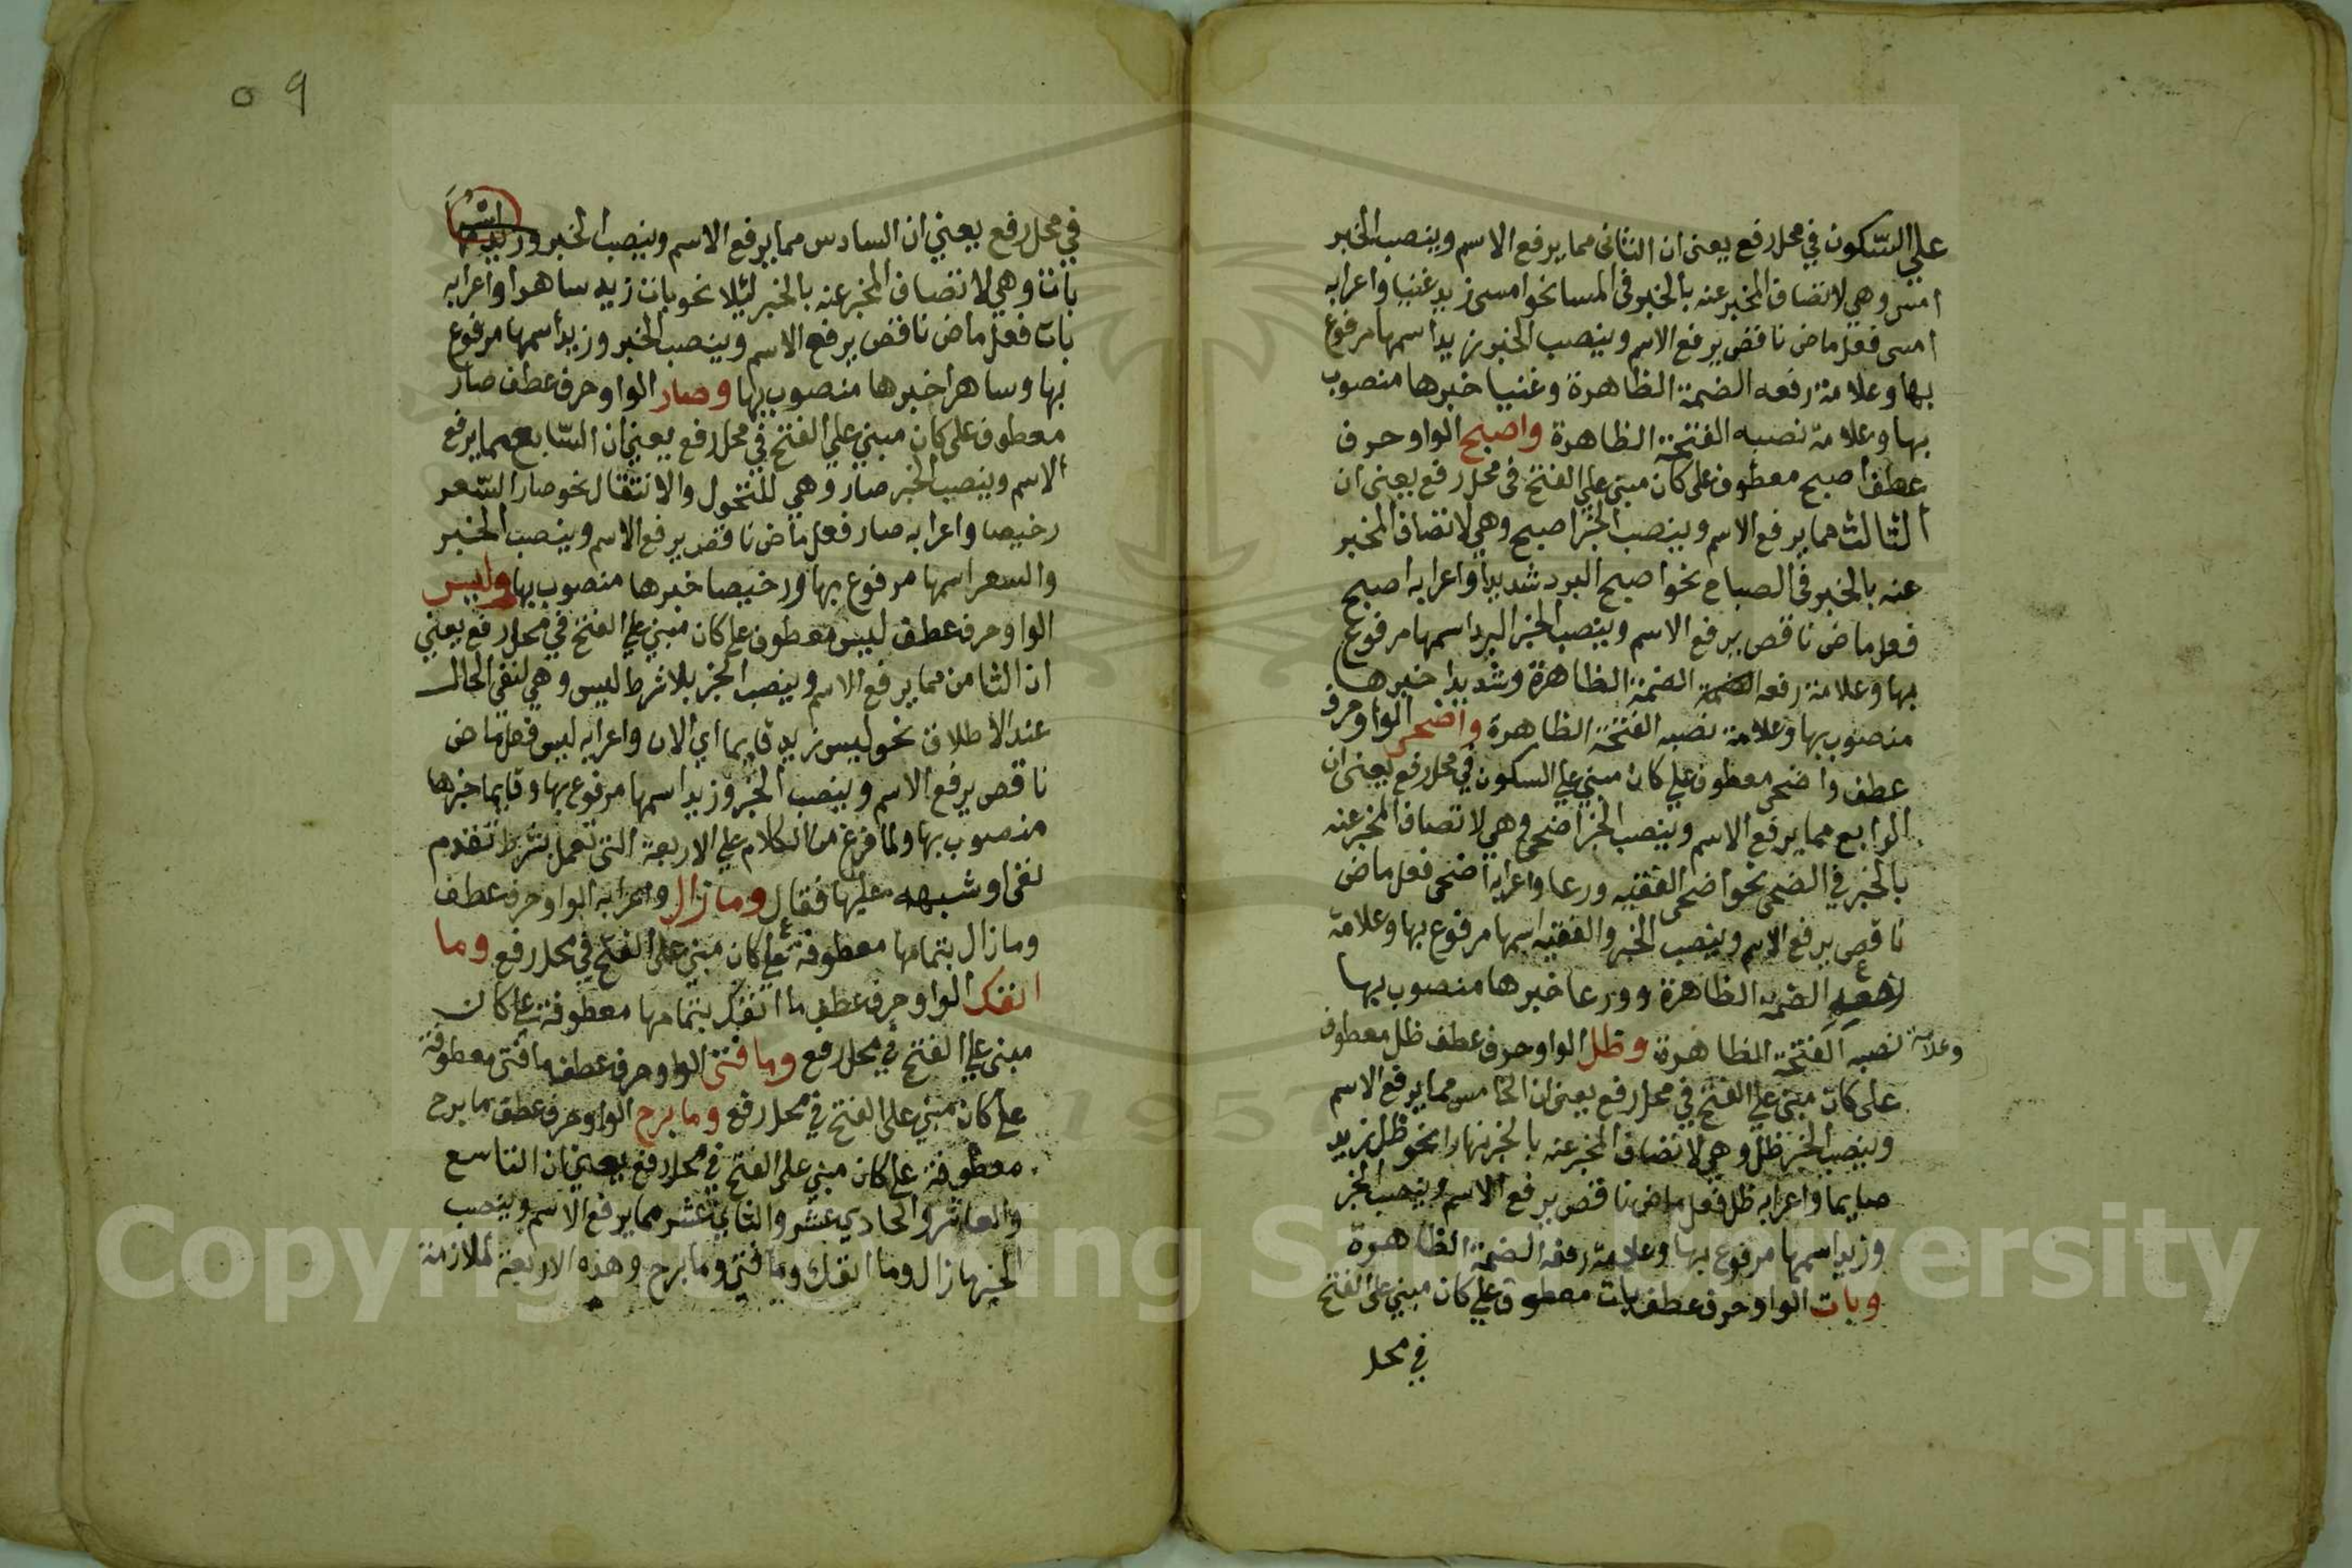 على السكون في محل رفع يعنى ان الثانى مما يرفع الاسم وينصب الخبر
امسى وهى لاتصاف المخبر عنه بالخبر فى المسا نحو امسى زيد غنيا واعرابه
امسى فعل ماض ناقص يرفع الاسم وينصب الخبر زيد اسمها مرفوع
بها وعلامة رفعه الضمة الظاهرة وغنيا خبرها منصوب
بها وعلامة نصبه الفتحة الظاهرة واصبح الواو حرف
عطف اصبح معطوف على كان مبنى على الفتح فى محل رفع يعنى ان
الثالث مما يرفع الاسم وينصب الخبر اصبح وهى لاتصاف المخبر
عنه بالخبر فى الصباح نحو اصبح البرد شديدا واعرابه اصبح
فعل ماض ناقص يرفع الاسم وينصب الخبر البرد اسمها مرفوع
بها وعلامة رفعه الضمة الظاهرة وشديدا خبرها
منصوب بها وعلامة نصبه الفتحة الظاهرة واضحى الواو حرف
عطف واضحى معطوف على كان مبنى على السكون في محل رفع يعنى ان
الرابع مما يرفع الاسم وينصب الخبر اضحى وهى لاتصاف المخبر عنه
بالخبر في الضحى نحو اضحى الفقيه ورعا واعرابه اضحى فعل ماض
ناقص يرفع الاسم وينصب الخبر والفقيه اسمها مرفوع بها وعلامة
رفعه الضمه الظاهرة وورعا خبرها منصوب بها
وعلامة نصبه الفتحة الظاهرة وظل الواو حرف عطف ظل معطوف
على كان مبنى على الفتح في محل رفع يعنى ان الخامس مما يرفع الاسم
وينصب الخبر ظل وهى لاتصاف المخبر عنه بالخبر نهارا نحو ظل زيد
صايما واعرابه ظل فعل ماض ناقص يرفع الاسم وينصب الخبر
وزيد اسمها مرفوع بها وعلامة رفعه الضمة الظاهرة
وبات الواو حرف عطف بات معطوف على كان مبنى على الفتح
في محل
٥٩
في محل رفع يعني ان السادس مما يرفع الاسم وينصب الخبر
بات وهي لاتصاف المخبر عنه بالخبر ليلا نحو بات زيد ساهرا واعرابه
بات فعل ماض ناقص يرفع الاسم وينصب الخبر وزيد اسمها مرفوع
بها وساهرا خبرها منصوب بها وصار الواو حرف عطف صار
معطوف على كان مبني على الفتح في محل رفع يعني ان السابع مما يرفع
الاسم وينصب الخبر صار وهي للتحول والانتقال نحو صار السعر
رخيصا واعرابه صار فعل ماض ناقص يرفع الاسم وينصب الخبر
والسعر اسمها مرفوع بها ورخيصا خبرها منصوب بها وليس
الواو حرف عطف ليس معطوف على كان مبني على الفتح في محل رفع يعني
ان الثامن مما يرفع الاسم وينصب الخبر بلا شرط ليس وهي لنفى الحال
عند الاطلاق نحو ليس زيد قايما اي الان واعرابه ليس فعل ماض
ناقص يرفع الاسم وينصب الخبر وزيد اسمها مرفوع بها وقايما خبرها
منصوب بها ولما فرغ من الكلام على الاربعة التى تعمل بشرط تقدم
نفى او شبهه عليها فقال وما زال واعرابه الواو حرف عطف
وما زال بتمامها معطوفة على كان مبنى على الفتح في محل رفع وما
انفك الواو حرف عطف ما انفك بتمامها معطوفة على كان
مبنى على الفتح في محل رفع وما فتئ الواو حرف عطف ما فتئ معطوفة
على كان مبني على الفتح في محل رفع وما برح الواو حرف عطف ما برح
معطوفة على كان مبني على الفتح في محل رفع يعني ان التاسع
والعاشر والحادي عشر والثاني عشر مما يرفع الاسم وينصب
الخبر ما زال وما انفك وما فتئ وما برح وهذه الاربعة لملازمة
Copyright © King Saud University
1957